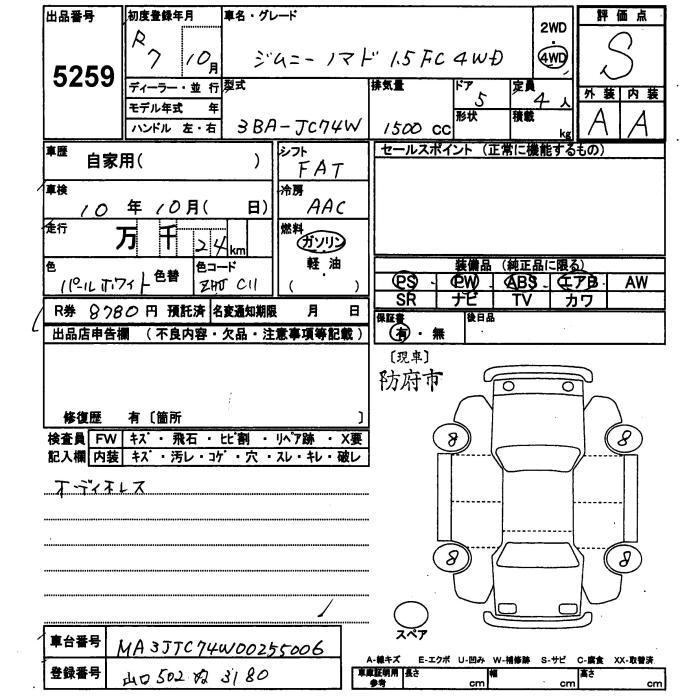 出品番号
5259
初度登録年月
R7 10月
車名・グレード
ジムニーノマド 1.5FC 4WD
2WD
4WD
評価点
S
外装 内装
A A
ディーラー・並行
モデル年式 年
ハンドル 左・右
型式
3BA-JC74W
排気量
1500 CC
ドア
5
形状
定員
4人
積載
kg
車歴
自家用( )
シフト
FAT
セールスポイント (正常に機能するもの)
車検
10年10月( 日)
冷房
AAC
走行
万 千 24km
燃料
ガソリン
軽・油
( )
色
パールホワイト 色替
色コード
ZHJ C11
装備品 (純正品に限る)
PS PW ABS エアB AW
SR ナビ TV カワ
R券 8780円 預託済 名変通知期限 月 日
保証書
有・無
後日品
出品店申告欄 (不良内容・欠品・注意事項等記載)
修復歴 有〔箇所 〕
[現車]
防府市
検査員 FW キズ・飛石・ヒビ割・リペア跡・X要
記入欄 内装 キズ・汚レ・コゲ・穴・スレ・キレ・破レ
オーディオレス
8 8
8 8
スペア
車台番号 MA3JJC74W00255006
登録番号 山口502ぬ3180
A-線キズ E-エクボ U-凹み W-補修跡 S-サビ C-腐食 XX-取替済
車庫証明用参考 長さ cm 幅 cm 高さ cm